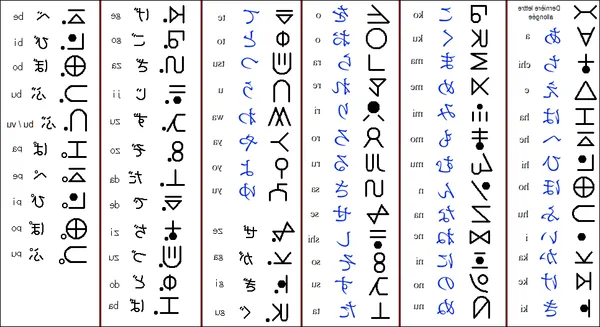 Dernière lettre
allongée
あ a
ち chi
え e
は ha
へ he
ひ hi
ほ ho
ふ hu
い i
か ka
け ke
き ki
こ ko
く ku
ま ma
め me
み mi
も mo
む mu
ん n
な na
ね ne
に ni
の no
ぬ nu
を o
お o
ら ra
れ re
り ri
ろ ro
る ru
さ sa
せ se
し shi
そ so
す su
た ta
て te
と to
つ tsu
う u
わ wa
や ya
よ yo
ゆ yu
ぜ ze
が ga
ぎ gi
ぐ gu
げ ge
ご go
ざ za
じ ji
ず zu
ぞ zo
だ da
で de
ぢ zi
づ zu
ど do
ば ba
べ be
び bi
ぼ bo
ぶ bu
ぶ bu / vu
ぱ pa
ぺ pe
ぴ pi
ぽ po
ぷ pu